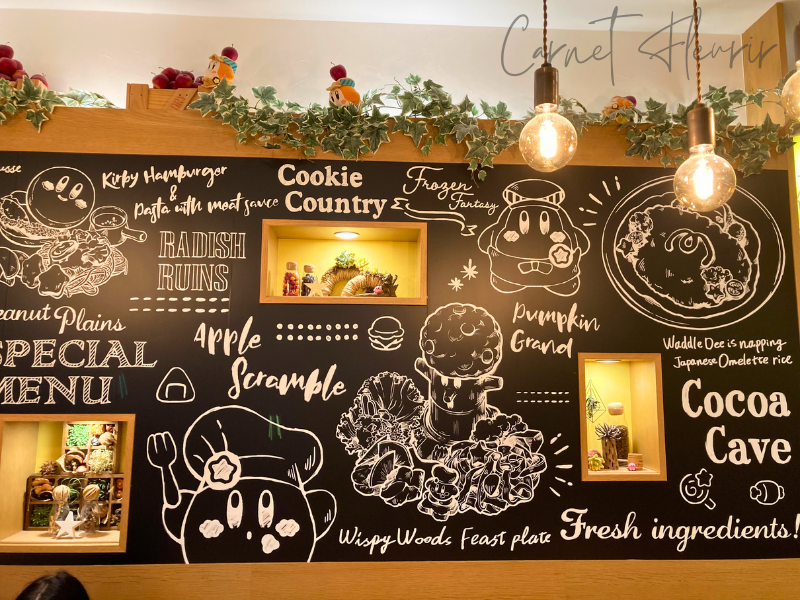 Carnet Fleurir
Kirby Hamburger
&
Pasta with meat sauce
Cookie
Country
Frozen
Fantasy
RADISH
RUINS
Peanut Plains
SPECIAL
MENU
Apple
Scramble
Pumpkin
Grand
Waddle Dee is napping
Japanese Omelette rice
Cocoa
Cave
Wispy Woods Feast plate
Fresh ingredients!